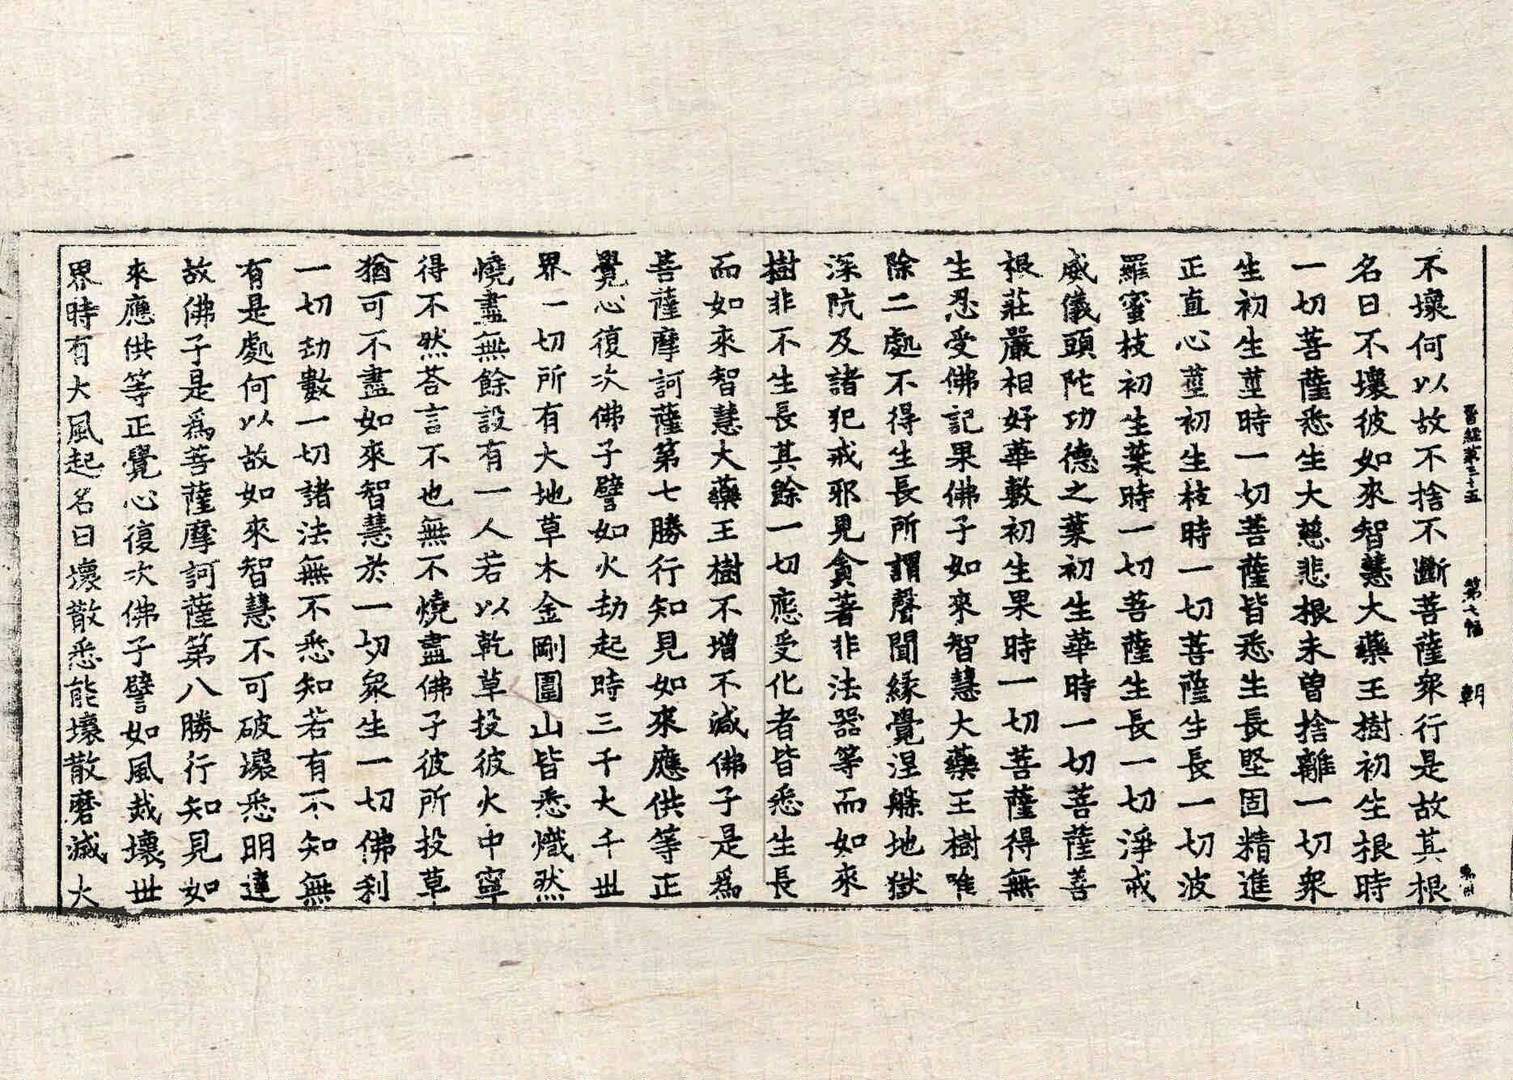 晉經第三十五 第七幅 朝
不壞何以故不捨不斷菩薩衆行是故其根
名曰不壞彼如來智慧大藥王樹初生根時
一切菩薩悉生大慈悲根未曽捨離一切衆
生初生莖時一切菩薩皆悉生長堅固精進
正直心莖初生枝時一切菩薩生長一切波
羅蜜枝初生葉時一切菩薩生長一切淨戒
威儀頭陀功德之葉初生華時一切菩薩善
根莊嚴相好華敷初生果時一切菩薩得無
生忍受佛記果佛子如來智慧大藥王樹唯
除二處不得生長所謂聲聞緣覺涅槃地獄
深阬及諸犯戒邪見貪著非法器等而如來
樹非不生長其餘一切應受化者皆悉生長
而如來智慧大藥王樹不增不減佛子是為
菩薩摩訶薩第七勝行知見如來應供等正
覺心復次佛子譬如火劫起時三千大千世
界一切所有大地草木金剛圍山皆悉熾然
燒盡無餘設有一人若以乾草投彼火中寧
得不然荅言不也無不燒盡佛子彼所投草
猶可不盡如來智慧於一切衆生一切佛刹
一切劫數一切諸法無不悉知若有不知無
有是處何以故如來智慧不可破壞悉明達
故佛子是為菩薩摩訶薩第八勝行知見如
來應供等正覺心復次佛子譬如風烖壞世
界時有大風起名曰壞散悉能壞散磨滅大